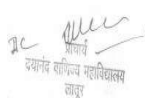 प्राचार्य
दयानंद वाणिज्य महाविद्यालय
लातूर